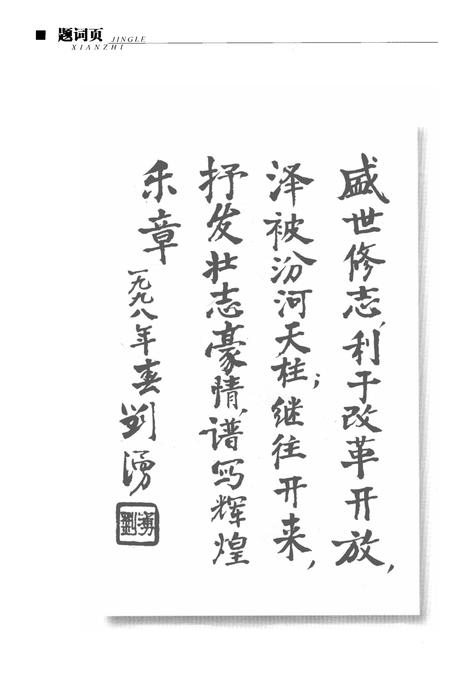 题词页
JINGLE
XIANZHI
盛世修志,利于改革开放,
泽被汾河天柱;继往开来,
抒发壮志豪情,谱写辉煌
乐章
一九九八年春 刘湧